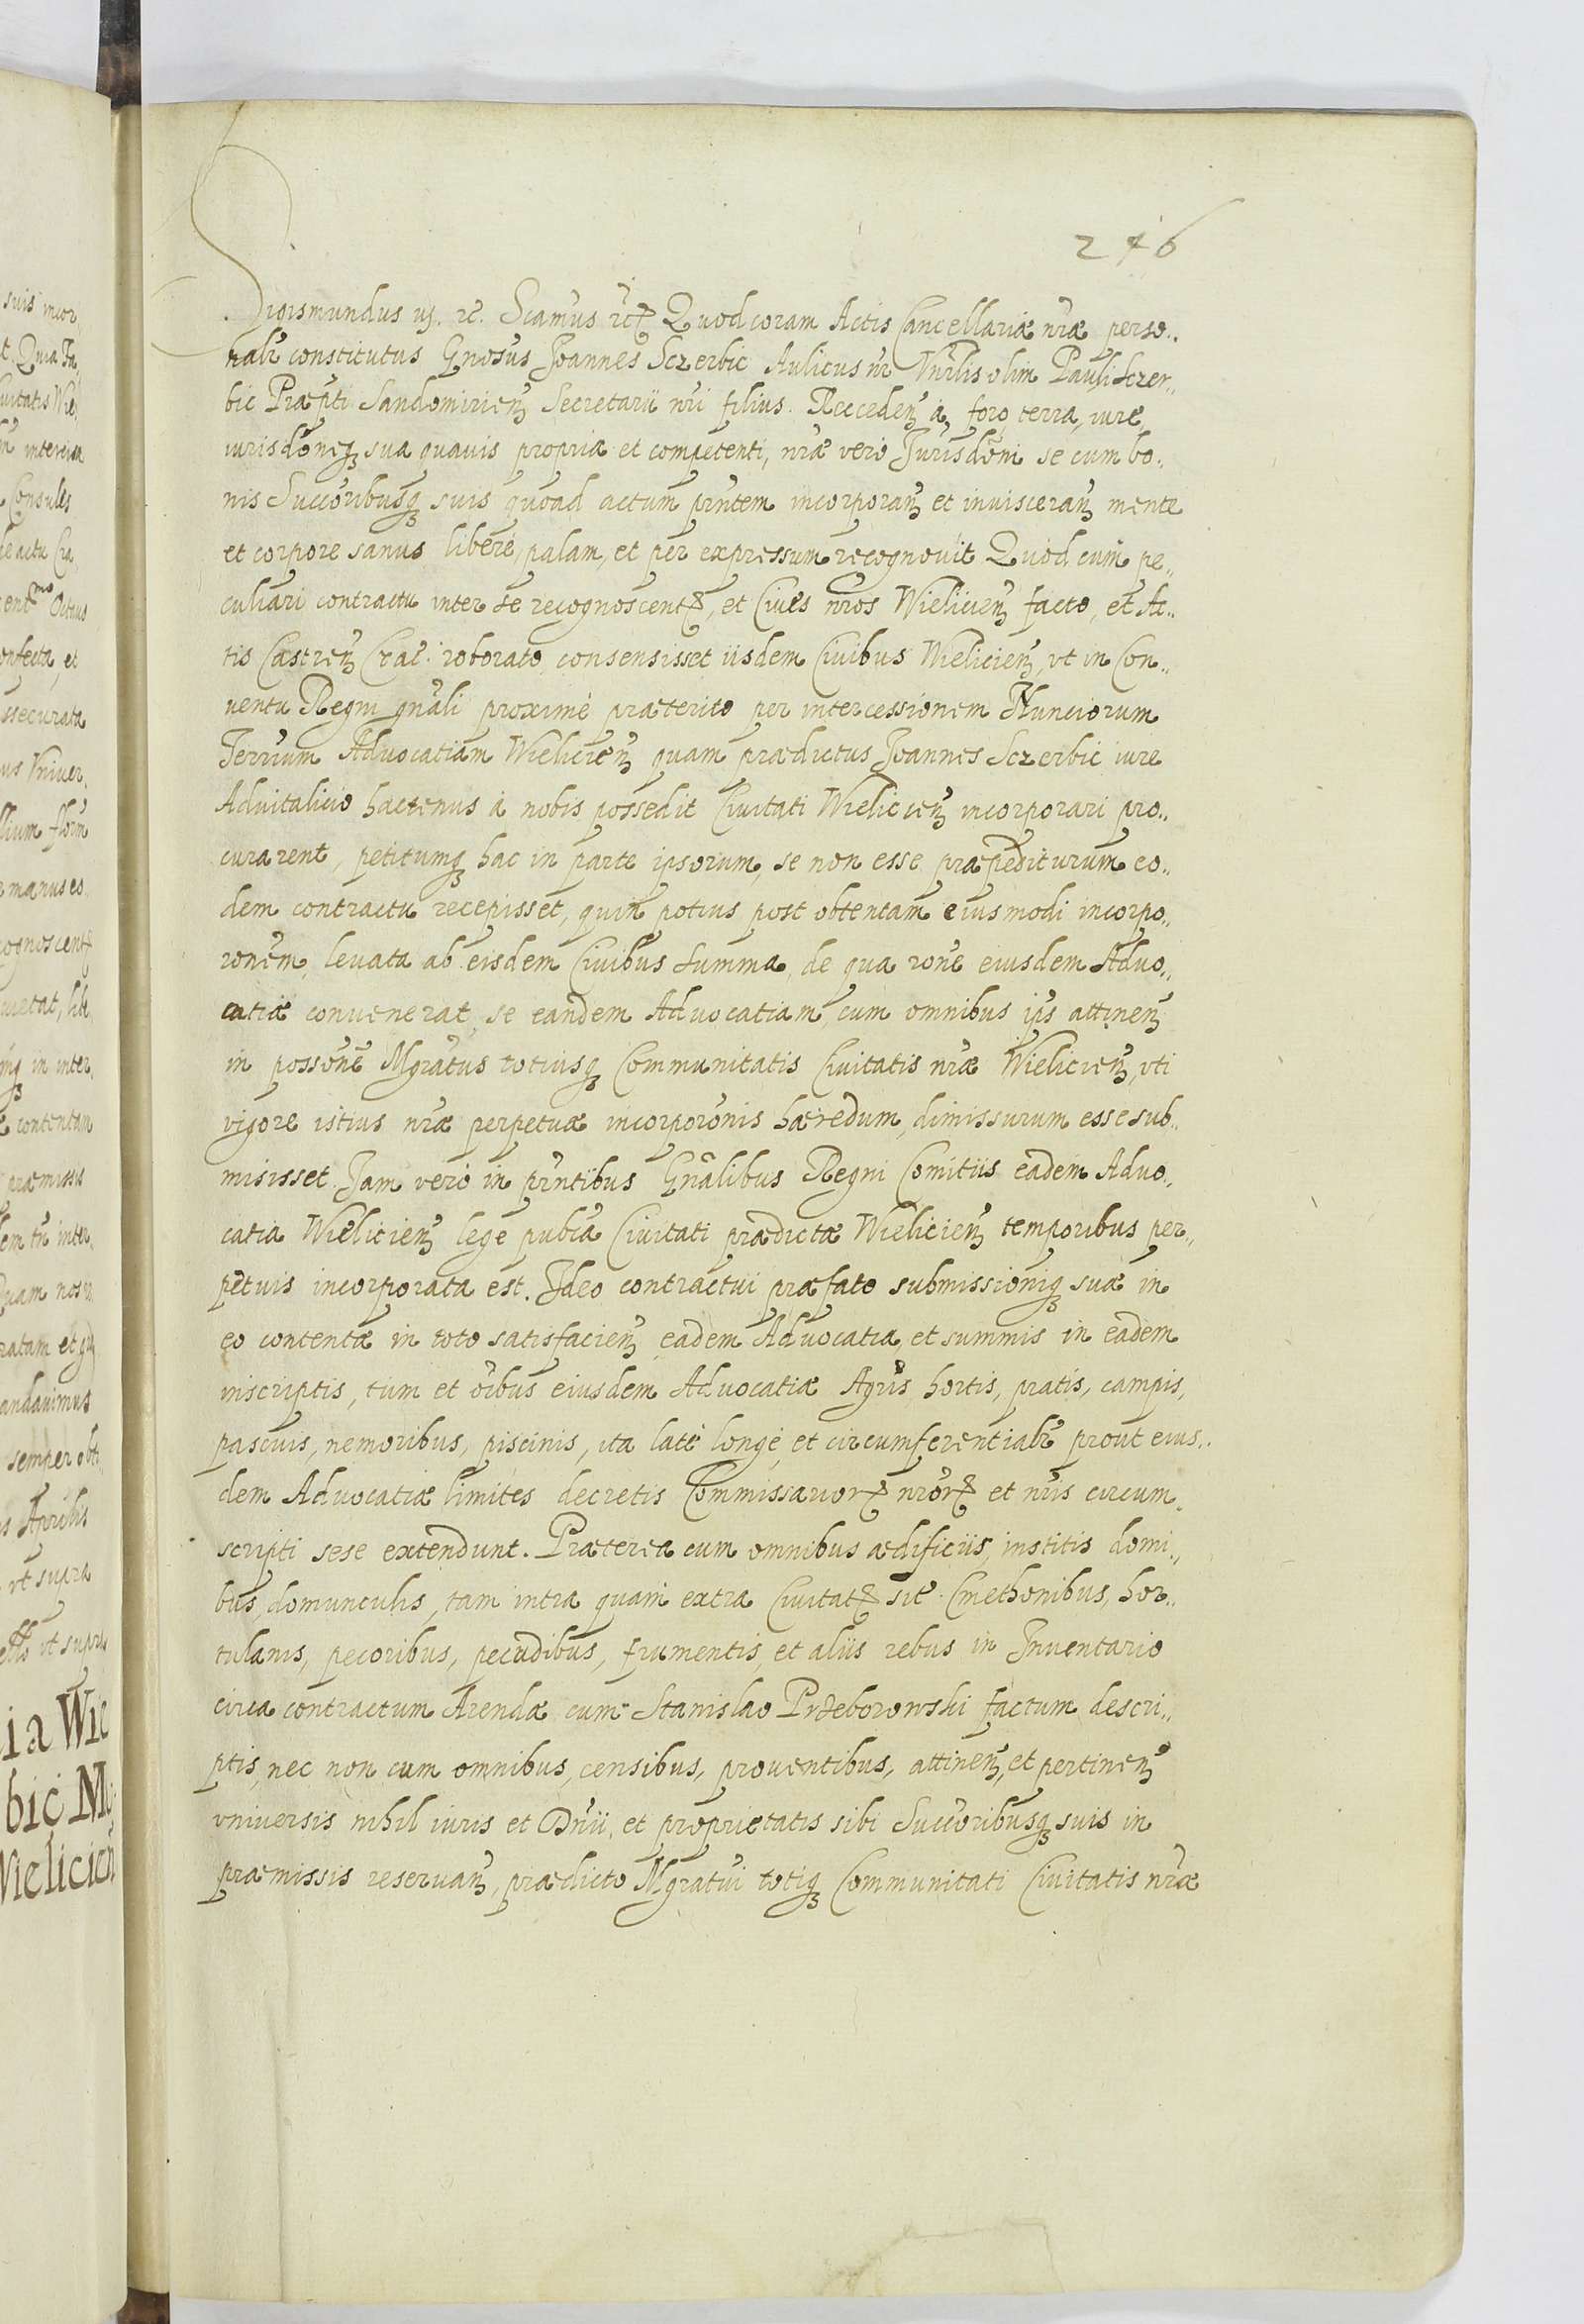 246
Sigismundus iij. etc. Scamus etc. Quod coram Actis Cancellariæ nræ perso..
nalr constitutus Gnosus Joannes Sczerbic Aulicus nr Vnrlis olim Pauli Sczer..
bic Præpti Sandomirien̄ Secretarii nri filius. Receden̄ à foro, terra, iure,
iurisdōneq; sua quauis propria et competenti, nræ vero Jurisdōni se cum bo..
nis Succōribusq; suis quoad actum prntem incorporan̄ et inuisceran̄ mente
et corpore sanus liberè, palam, et per expressum recognouit Quod cum pe..
culiari contractu inter se recognoscentem, et Ciues nros Wielicien̄ facto, et Ac..
tis Castren̄ Crac. roborato consensisset iisdem Ciuibus Wielicien̄, vt in Con..
uentu Regni gnāli proximè præterito per intercessionem Nunciorum
Terrrium Aduocatiam Wielicien̄ quam prædictus Joannes Sczerbic iure
Aduitalicio hactenus à nobis possedit Ciuitati Wielicien̄ incorporari pro..
curarent, petitumq; hac in parte ipsorum, se non esse præpediturum eo..
dem contractu recepisset, quin potius post obtentam eiusmodi incorpo..
rōnem, leuata ab eisdem Ciuibus summa, de qua rōne eiusdem Aduo..
catiæ conuenerat, se eandem Aduocatiam cum omnibus ips attinen̄
in possōne Mgrātus totiusq; Communitatis Ciuitatis nræ Wielicien̄, vti
vigore istius nræ perpetuæ incorporōnis hæredum, dimissurum esse sub..
misisset. Jam verò in prntibus Gnālibus Regni Comitiis eadem Aduo..
catia Wielicien̄ lege publca Ciuitati prædictæ Wielicien̄ temporibus per..
petuis incorporata est. Ideo contractui præfato submissioniq; suæ in
eo contentæ in toto satisfacien̄ eadem Aduocatia, et summis in eadem
inscriptis, tum et oībus eiusdem Aduocatiæ Agris, hortis, pratis, campis,
pascuis, nemoribus, piscinis, ita latè longè, et circumferentialr prout eius..
dem Aduocatiæ limites decretis Commissariorum nrorum et nris circum..
scripti sese extendunt. Præterea cum omnibus ædificiis, institis domi..
bus, domunculis, tam intra quam extra Ciuitatem sit. Cmethonibus, hor..
tulanis, pecoribus, pecudibus, frumentis, et aliis rebus in Inuentario
circa contractum Arendæ cum Stanislao Przeborowski factum descri..
ptis, nec non cum omnibus, censibus, prouentibus, attinen̄, et pertinen̄
vniuersis nihil iuris et Dnii, et proprietatis sibi Succōribusq; suis in
præmissis reseruan̄, prædicto Mgratui totiq; Communitati Ciuitatis nræ